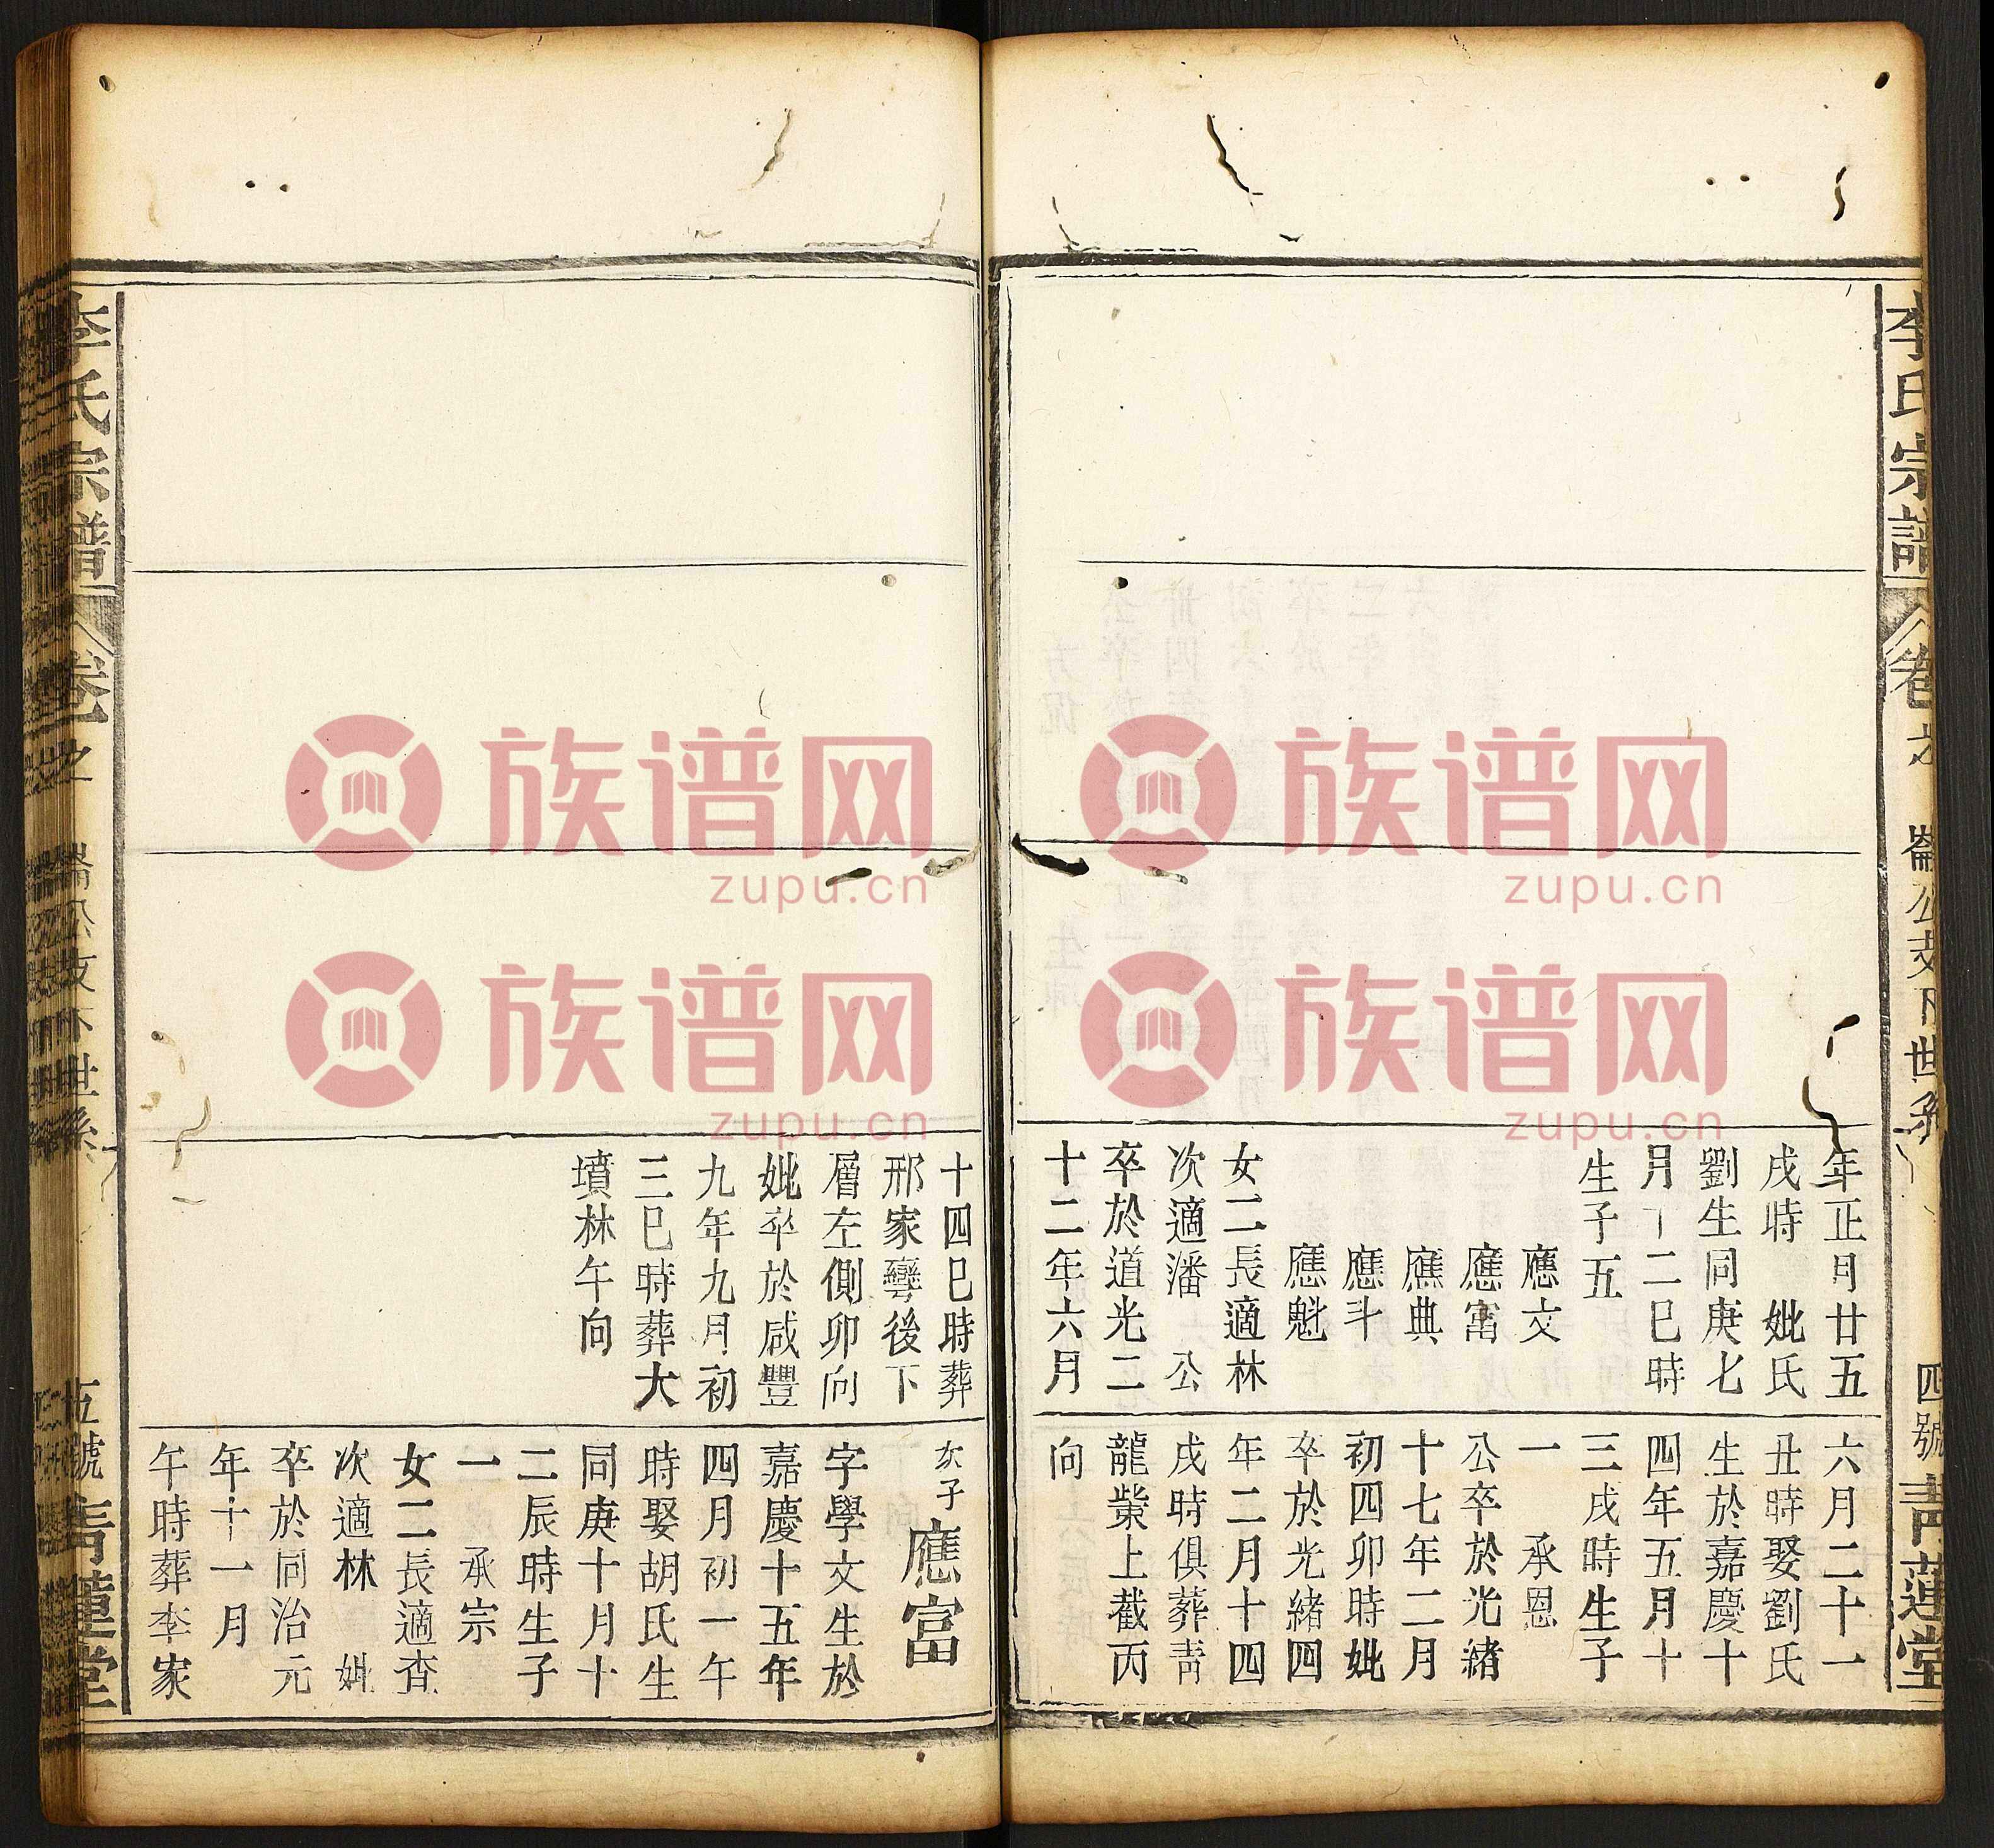 李氏宗譜
卷之
崙公支下世系
四號
青蓮堂
年正月廿五
戌時 妣氏
劉生同庚七
月十二巳時
生子五
應文
應富
應典
應斗
應魁
女二長適林
次適潘 公
卒於道光二
十二年六月
六月二十一
丑時娶劉氏
生於嘉慶十
四年五月十
三戌時生子
一 承恩
公卒於光緒
十七年二月
初四卯時妣
卒於光緒四
年二月十四
戌時俱葬靑
龍嘴上截丙
向
十四巳時葬
邢家灣後下
層左側卯向
妣卒於咸豐
九年九月初
三巳時葬大
墳林午向
次子應富
字學文生於
嘉慶十五年
四月初一午
時娶胡氏生
同庚十月十
二辰時生子
一 承宗
女二長適杳
次適林 妣
卒於同治元
年十一月
午時葬李家
李氏宗譜
卷之
崙公支下世系
五號
青蓮堂
族谱网
zupu.cn
族谱网
zupu.cn
族谱网
zupu.cn
族谱网
zupu.cn